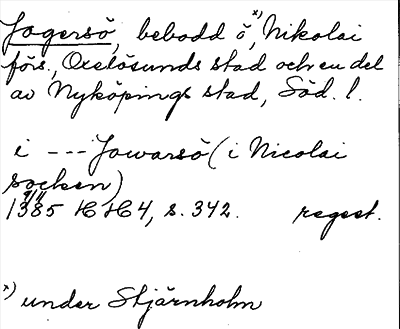 Jogersö, bebodd ö,ˣ⁾ Nikolai
förs., Oxelösunds stad och en del
av Nyköpings stad, Söd. l.
i --- Jowarsö (i Nicolai
socken)
1385 9/11 HH 4, s. 342. regest.
ˣ⁾ under Stjärnholm